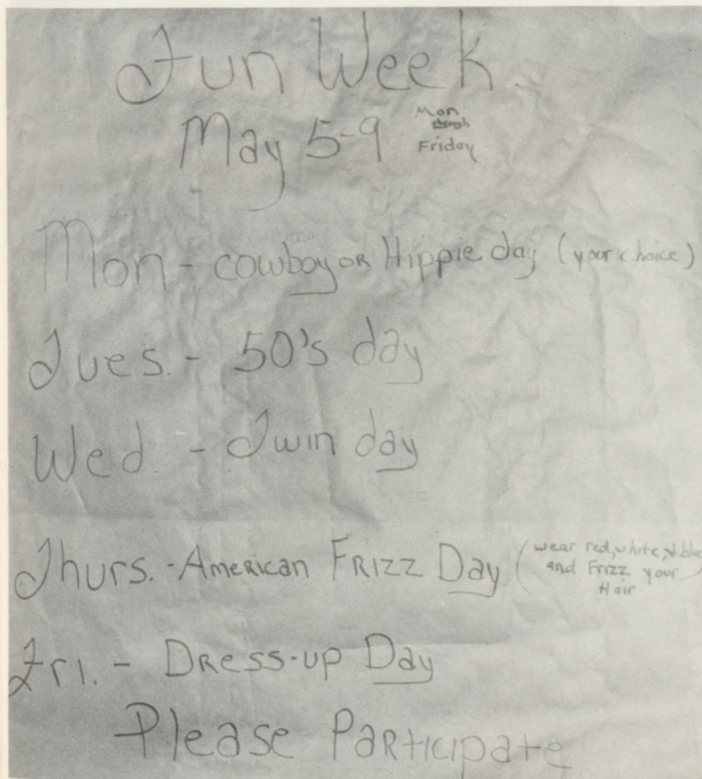 Fun Week
May 5-9 Mon through Friday
Mon - cowboy or Hippie day (your choice)
Tues. - 50's day
Wed. - Twin day
Thurs. - American Frizz Day (wear red, white, & blue and Frizz your Hair
Fri. - Dress-up Day
Please Participate